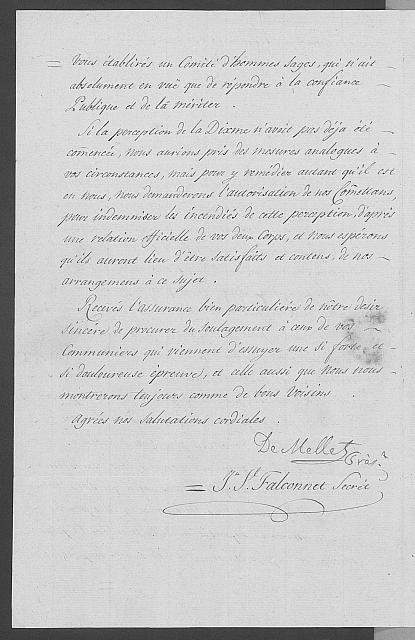 = Vous établirés un Comité d'hommes Sages, qui n'ait -
absolument en vuë que de répondre à la confiance
Publique et de la mériter.
Si la perception de la Dixme n'avoit pas déja été -
comencée, nous aurions pris des mesures analogues à
vos circonstances, mais pour y remédier autant qu'il est
en nous, nous demanderons l'autorisation de nos Comêtians,
pour indemniser les incendiés de cette perception, d'après
une relation officielle de vos deux Corps, et nous espérons
qu'ils auront lieu d'être satisfaits et contens, de nos -
arrangemens à ce sujet.
Recevés l'assurance bien particulière de nôtre desir
sincère de procurer du soulagement à ceux de vos -
Communiers qui viennent d'essuyer une si forte et -
si douloureuse épreuve, et celle aussi que nous nous -
montrerons toujours comme de bons Voisins.
Agréés nos salutations cordiales.
De Mellet Prést.
= J. S. Falconnet Secrét